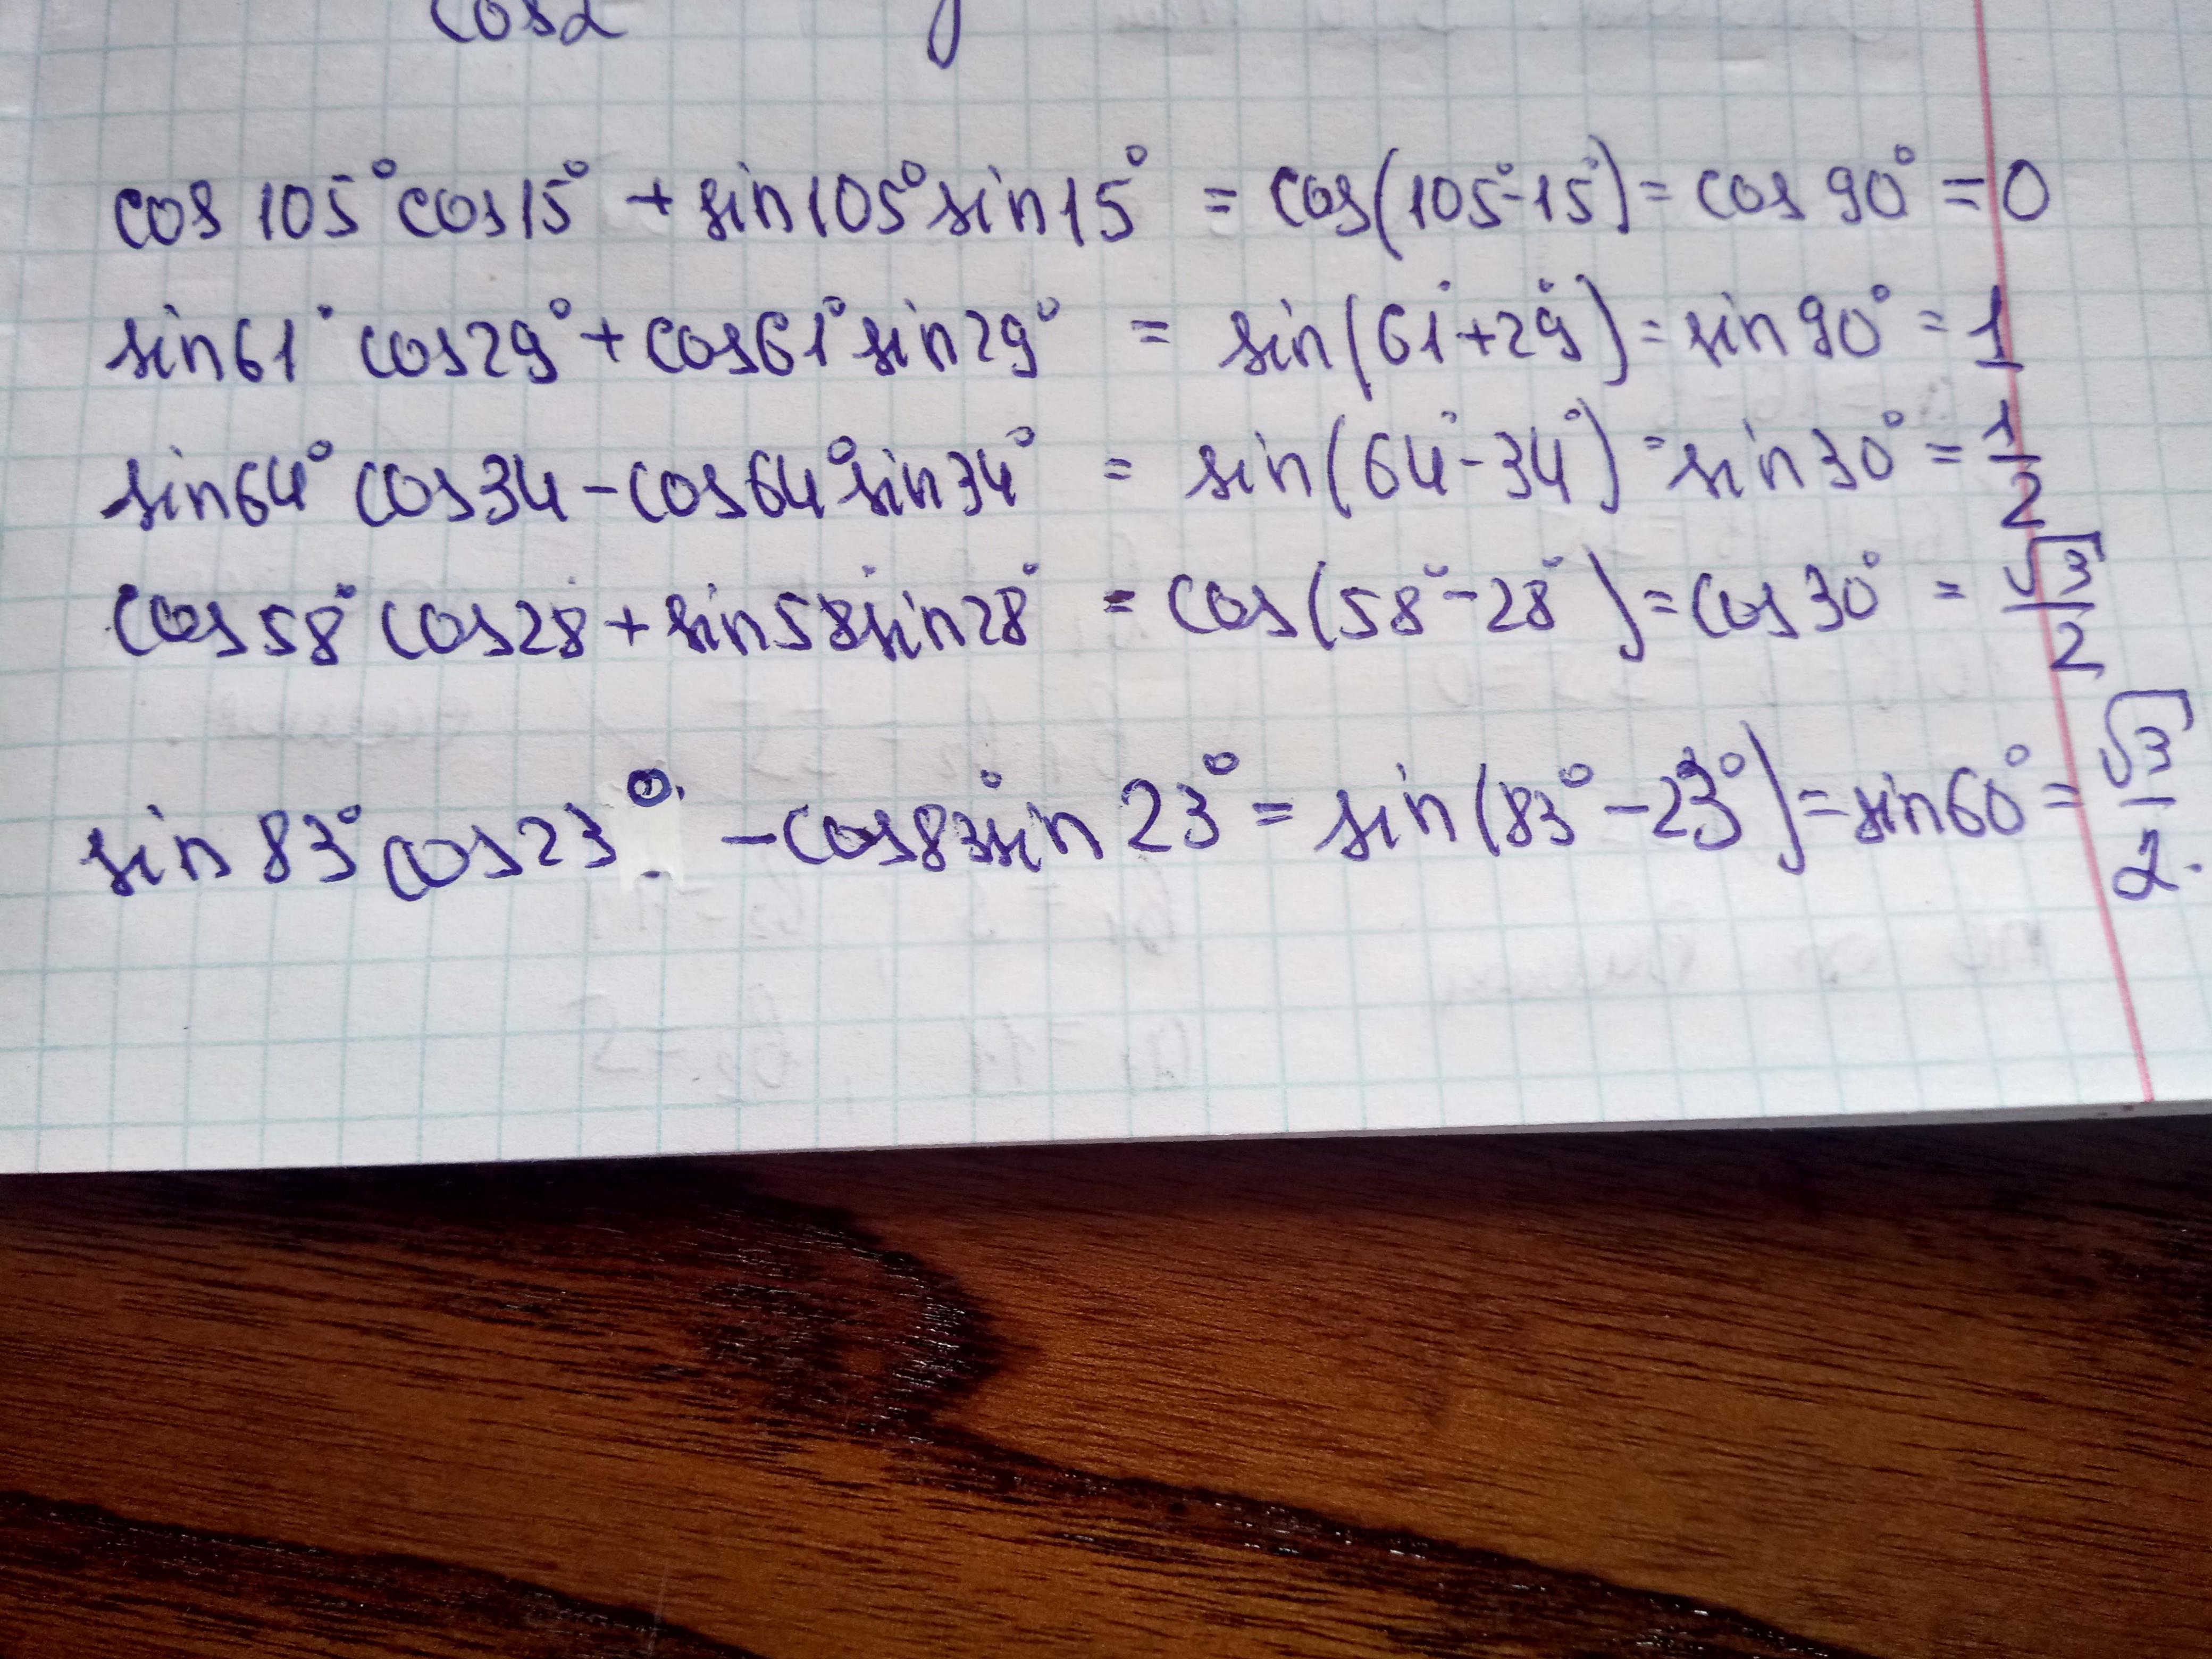 cos2
cos 105° cos15° + sin105° sin15° = cos(105°-15°) = cos 90° = 0
sin61° cos29° + cos61° sin29° = sin(61°+29°) = sin90° = 1
sin64° cos34 - cos64° sin34° = sin(64°-34°) = sin30° = 1/2
cos58° cos28° + sin58° sin28° = cos(58°-28°) = cos30° = √3/2
sin 83° cos23° - cos83° sin 23° = sin(83°-23°) = sin60° = √3/2.